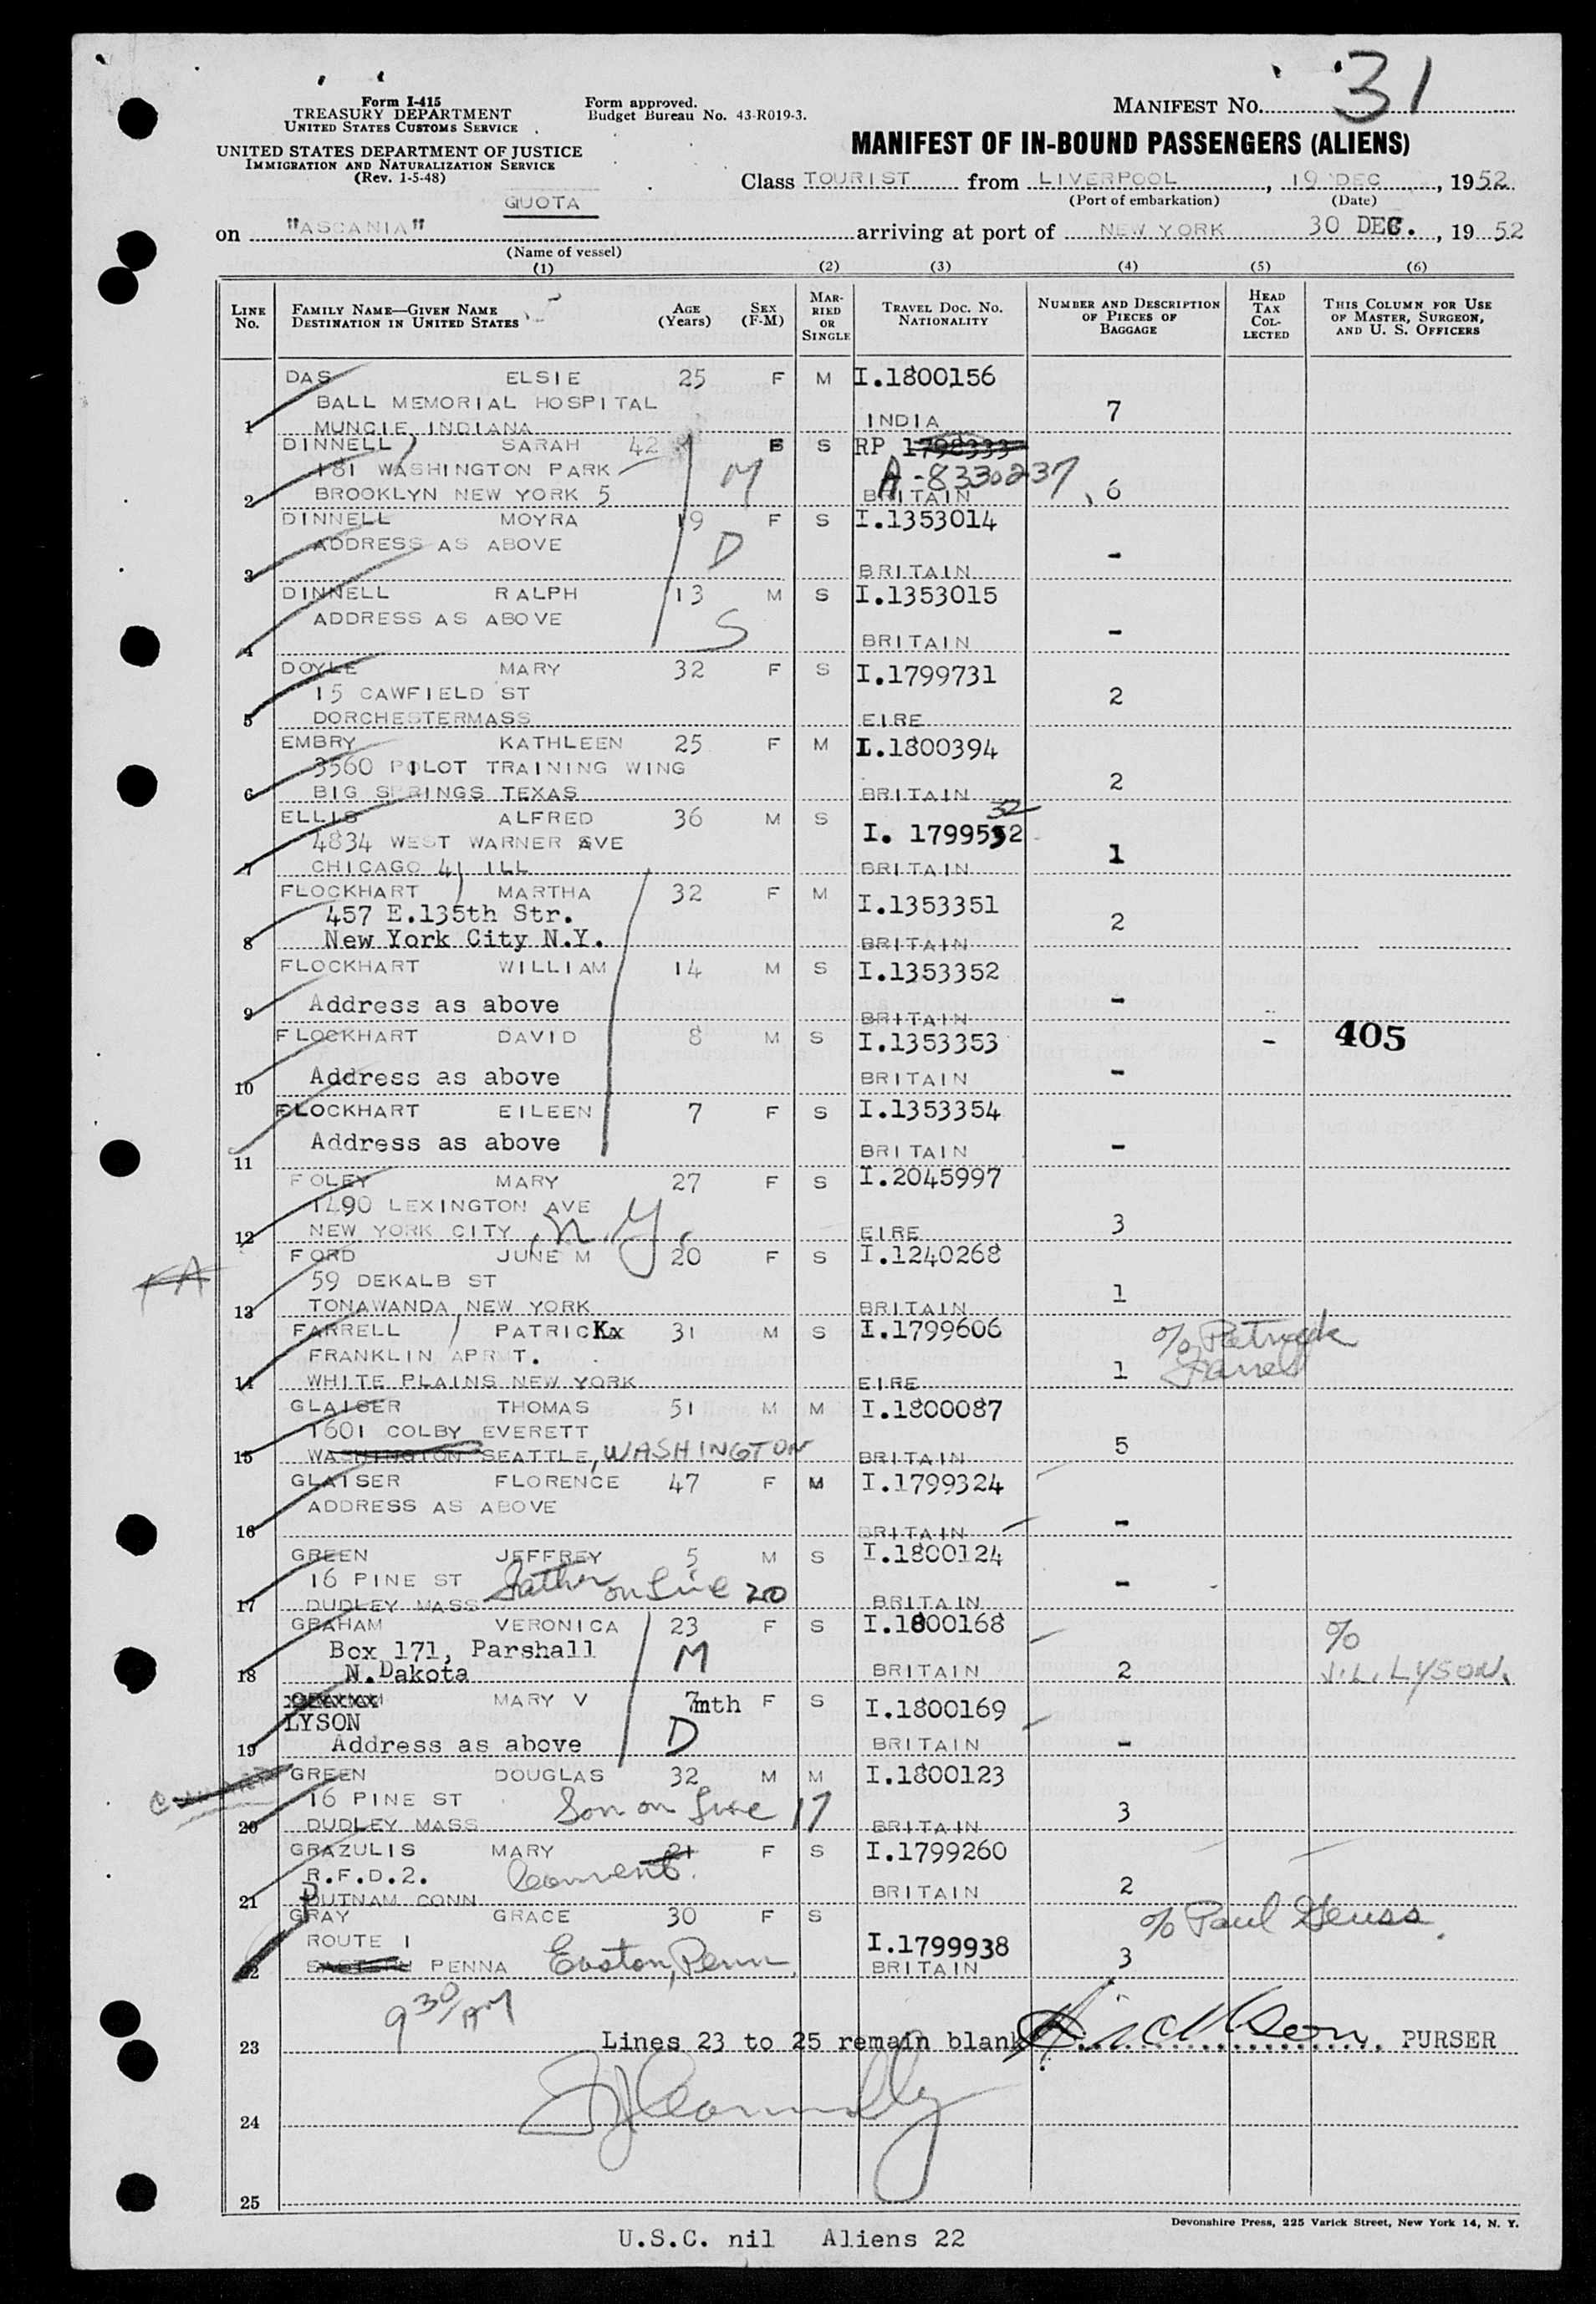 31
Form I-415
TREASURY DEPARTMENT
UNITED STATES CUSTOMS SERVICE
Form approved.
Budget Bureau No. 43-R019-3.
MANIFEST NO.
UNITED STATES DEPARTMENT OF JUSTICE
IMMIGRATION AND NATURALIZATION SERVICE
(Rev. 1-5-48)
MANIFEST OF IN-BOUND PASSENGERS (ALIENS)
Class TOURIST from LIVERPOOL, 19 DEC, 1952
(Port of embarkation) (Date)
QUOTA
on "ASCANIA" arriving at port of NEW YORK 30 DEC., 1952
(Name of vessel)
(1) (2) (3) (4) (5) (6)
LINE No. FAMILY NAME—GIVEN NAME DESTINATION IN UNITED STATES AGE (Years) SEX (F-M) MARRIED OR SINGLE TRAVEL DOC. NO. NATIONALITY NUMBER AND DESCRIPTION OF PIECES OF BAGGAGE HEAD TAX COLLECTED THIS COLUMN FOR USE OF MASTER, SURGEON, AND U. S. OFFICERS
DAS ELSIE 25 F M I.1800156
BALL MEMORIAL HOSPITAL 7
1 MUNCIE INDIANA INDIA
DINNELL SARAH 42 F S RP 1798333
181 WASHINGTON PARK M A-8330237
2 BROOKLYN NEW YORK 5 BRITAIN 6
DINNELL MOYRA 19 F S I.1353014
ADDRESS AS ABOVE D -
3 BRITAIN
DINNELL RALPH 13 M S I.1353015
ADDRESS AS ABOVE S -
4 BRITAIN
DOYLE MARY 32 F S I.1799731
15 CAWFIELD ST 2
5 DORCHESTERMASS EIRE
EMBRY KATHLEEN 25 F M I.1800394
3560 PILOT TRAINING WING 2
6 BIG SPRINGS TEXAS BRITAIN
32
ELLIS ALFRED 36 M S I. 1799552
4834 WEST WARNER AVE 1
7 CHICAGO 41 ILL BRITAIN
FLOCKHART MARTHA 32 F M I.1353351
457 E.135th Str. 2
8 New York City N.Y. BRITAIN
FLOCKHART WILLIAM 14 M S I.1353352
9 Address as above BRITAIN -
FLOCKHART DAVID 8 M S I.1353353 - 405
10 Address as above BRITAIN -
FLOCKHART EILEEN 7 F S I.1353354
11 Address as above BRITAIN -
FOLEY MARY 27 F S I.2045997
1490 LEXINGTON AVE 3
12 NEW YORK CITY, N.Y. EIRE
FORD JUNE M 20 F S I.1240268
59 DEKALB ST 1
13 TONAWANDA NEW YORK BRITAIN
FARRELL PATRICKx 31 M S I.1799606 c/o Patrick
FRANKLIN APRMT. 1 Farrell
14 WHITE PLAINS NEW YORK EIRE
GLAISER THOMAS 51 M M I.1800087
1601 COLBY EVERETT 5
15 WASHINGTON SEATTLE, WASHINGTON BRITAIN
GLAISER FLORENCE 47 F M I.1799324
ADDRESS AS ABOVE -
16 BRITAIN
GREEN JEFFREY 5 M S I.1800124
16 PINE ST Father on line 20 -
17 DUDLEY MASS BRITAIN
GRAHAM VERONICA 23 F S I.1800168
Box 171, Parshall M c/o
18 N.Dakota BRITAIN 2 J.L. LYSON.
MARY V 7mth F S I.1800169
LYSON
19 Address as above D BRITAIN -
GREEN DOUGLAS 32 M M I.1800123
16 PINE ST Son on line 17 3
20 DUDLEY MASS BRITAIN
GRAZULIS MARY 21 F S I.1799260
R.F.D.2. Convent. 2
21 PUTNAM CONN BRITAIN
GRAY GRACE 30 F S c/o Paul Geuss.
ROUTE 1 I.1799938 3
22 PENNA Easton, Penn. BRITAIN
9 30/AM
23 Lines 23 to 25 remain blank PURSER
24
25
Devonshire Press, 225 Varick Street, New York 14, N. Y.
U.S.C. nil Aliens 22